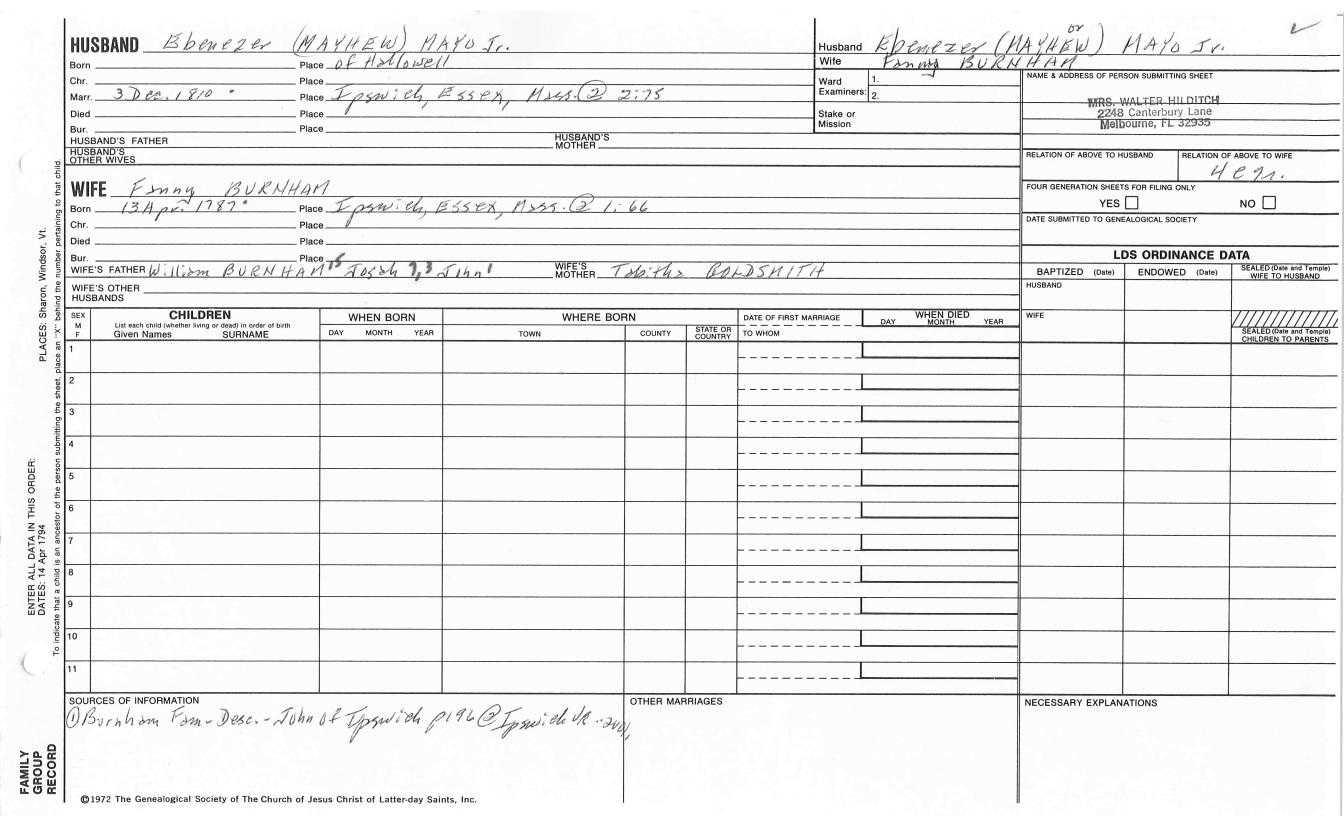 HUSBAND Ebenezer (MAYHEW) MAYO Jr.
Born Place of Hallowell
Chr. Place
Marr. 3 Dec. 1810 Place Ipswich, Essex, Mass. ② 2:75
Died Place
Bur. Place
HUSBAND'S FATHER HUSBAND'S MOTHER
HUSBAND'S OTHER WIVES
or
Husband Ebenezer (MAYHEW) MAYO Jr.
Wife Fanny BURNHAM
Ward Examiners: 1.
2.
Stake or Mission
NAME & ADDRESS OF PERSON SUBMITTING SHEET
MRS. WALTER HILDITCH
2248 Canterbury Lane
Melbourne, FL 32935
RELATION OF ABOVE TO HUSBAND RELATION OF ABOVE TO WIFE
FOUR GENERATION SHEETS FOR FILING ONLY
YES NO
DATE SUBMITTED TO GENEALOGICAL SOCIETY
WIFE Fanny BURNHAM
Born 13 Apr. 1787 Place Ipswich, Essex, Mass. ② 1:66
Chr. Place
Died Place
Bur. Place
WIFE'S FATHER William BURNHAM John¹ WIFE'S MOTHER Tabitha GOLDSMITH
WIFE'S OTHER HUSBANDS
LDS ORDINANCE DATA
BAPTIZED (Date) ENDOWED (Date) SEALED (Date and Temple) WIFE TO HUSBAND
HUSBAND
WIFE
SEALED (Date and Temple) CHILDREN TO PARENTS
SEX M F
CHILDREN
List each child (whether living or dead) in order of birth
Given Names SURNAME
WHEN BORN
DAY MONTH YEAR
WHERE BORN
TOWN COUNTY STATE OR COUNTRY
DATE OF FIRST MARRIAGE
TO WHOM
WHEN DIED
DAY MONTH YEAR
1
2
3
4
5
6
7
8
9
10
11
SOURCES OF INFORMATION
① Burnham Fam - Desc. - John of Ipswich p196 ② Ipswich VR
OTHER MARRIAGES
NECESSARY EXPLANATIONS
©1972 The Genealogical Society of The Church of Jesus Christ of Latter-day Saints, Inc.
FAMILY GROUP RECORD
ENTER ALL DATA IN THIS ORDER:
DATES: 14 Apr 1794 PLACES: Sharon, Windsor, Vt.
To indicate that a child is an ancestor of the person submitting the sheet, place an "X" behind the number pertaining to that child